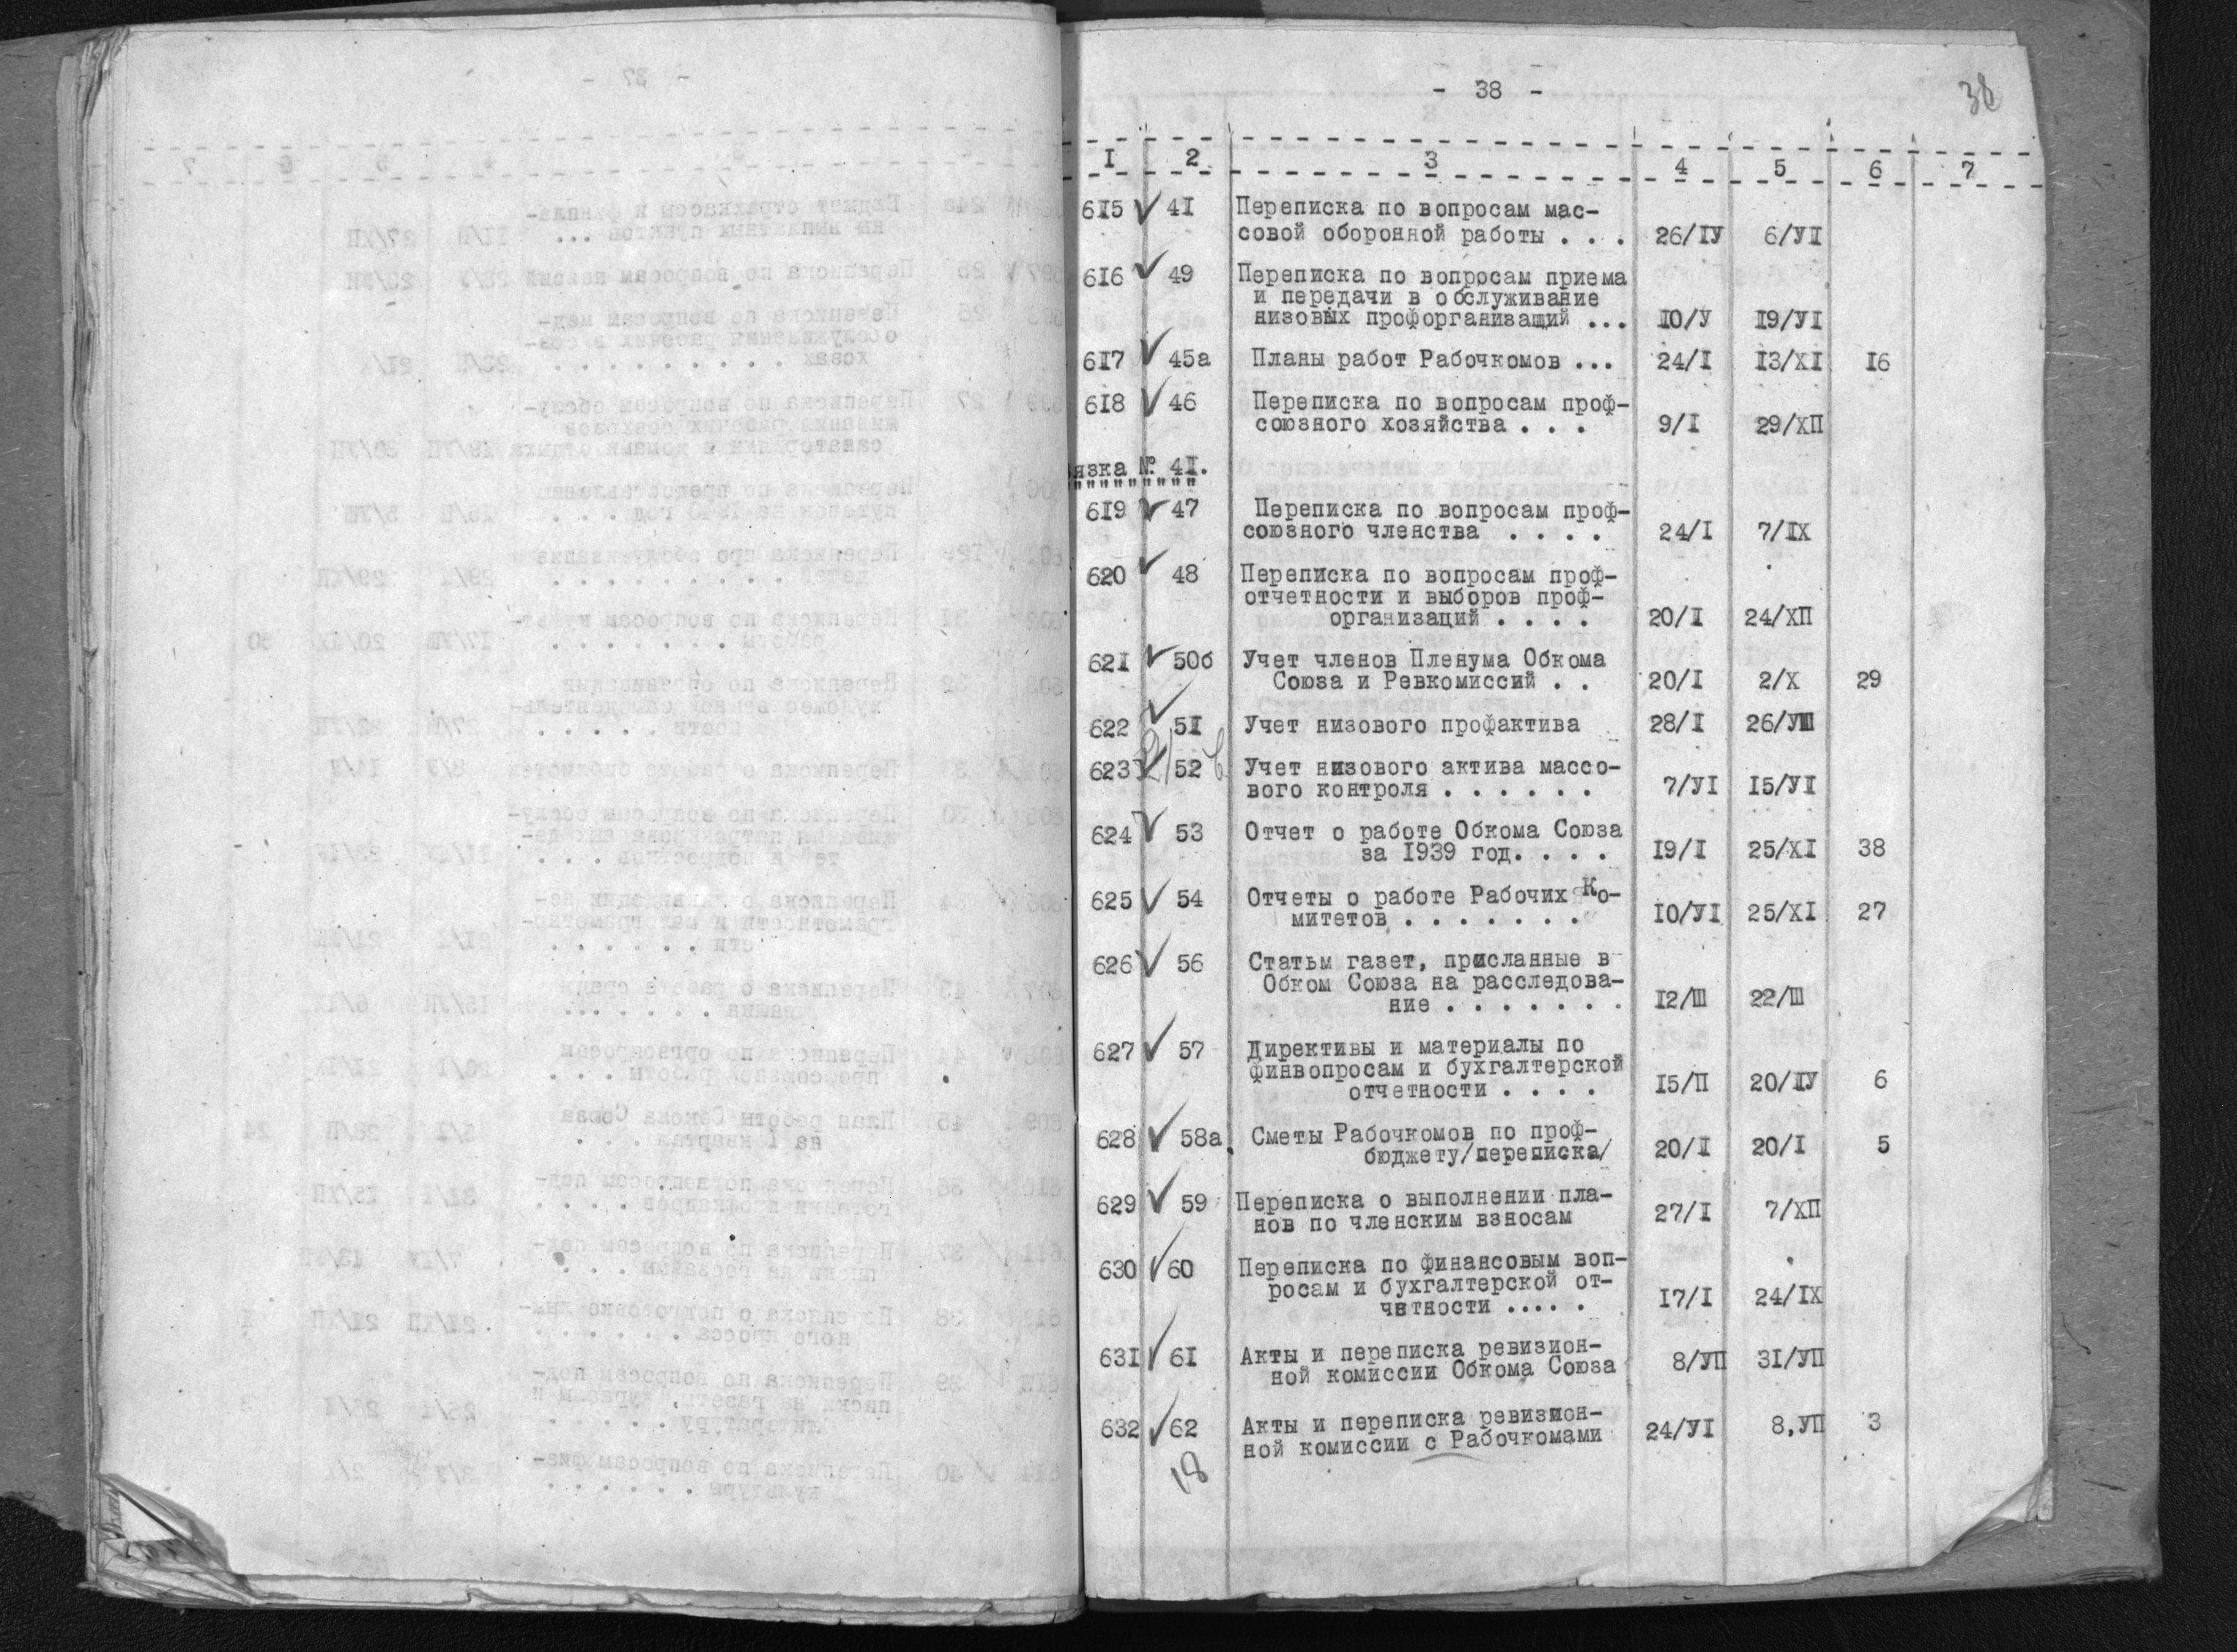 - 38 -
38
I 2 3 4 5 6 7
615 41 Переписка по вопросам мас-
совой оборонной работы . . . 26/IУ 6/УI
616 49 Переписка по вопросам приема
и передачи в обслуживание
низовых профорганизащий ... IO/У I9/УI
617 45а Планы работ Рабочкомов ... 24/I I3/XI I6
618 46 Переписка по вопросам проф-
союзного хозяйства . . . 9/I 29/ХП
язка № 4I.
619 47 Переписка по вопросам проф-
союзного членства . . . . 24/I 7/IX
620 48 Переписка по вопросам проф-
отчетности и выборов проф-
организаций . . . . 20/I 24/ХП
621 50б Учет членов Пленума Обкома
Союза и Ревкомиссий . . 20/I 2/X 29
622 5I Учет низового профактива 28/I 26/УШ
623 52 Учет низового актива массо-
вого контроля . . . . . . 7/УI I5/УI
624 53 Отчет о работе Обкома Союза
за I939 год. . . . I9/I 25/XI 38
625 54 Отчеты о работе Рабочих Ко-
митетов . . . . . . . IO/УI 25/XI 27
626 56 Статьм газет, присланные в
Обком Союза на расследова-
ние . . . . . . . I2/Ш 22/Ш
627 57 Директивы и материалы по
финвопросам и бухгалтерской
отчетности . . . . I5/П 20/IУ 6
628 58а. Сметы Рабочкомов по проф-
бюджету/переписка/ 20/I 20/I 5
629 59 Переписка о выполнении пла-
нов по членским взносам 27/I 7/ХП
630 60 Переписка по финансовым воп-
росам и бухгалтерской от-
четности ..... I7/I 24/IX
63I 6I Акты и переписка ревизион-
ной комиссии Обкома Союза 8/УП 3I/УП
632 62 Акты и переписка ревизион-
ной комиссии с Рабочкомами 24/УI 8,УП 3
18